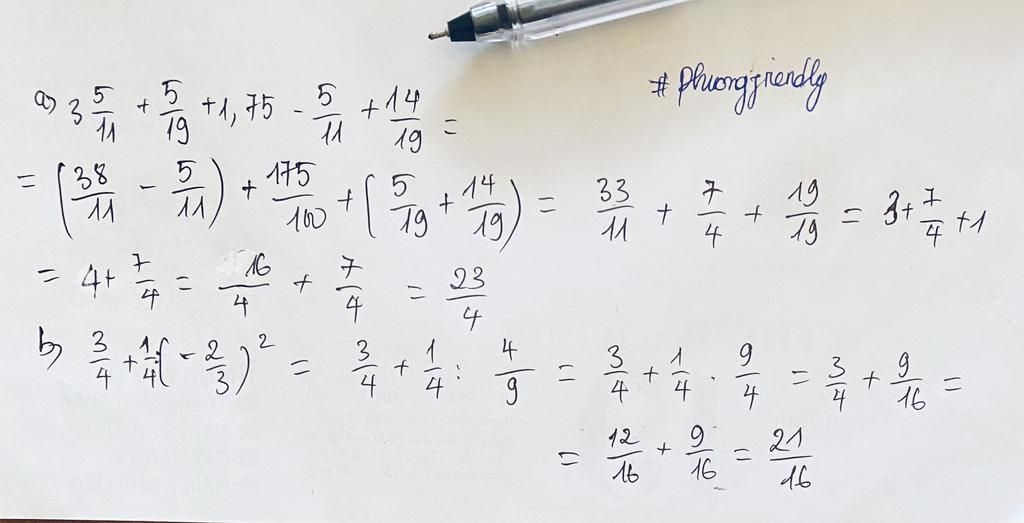 #Phuongfriendly
a) 3 5/11 + 5/19 + 1,75 - 5/11 + 14/19 =
= (38/11 - 5/11) + 175/100 + (5/19 + 14/19) = 33/11 + 7/4 + 19/19 = 3 + 7/4 + 1
= 4 + 7/4 = 16/4 + 7/4 = 23/4
b) 3/4 + 1/4 : (-2/3)² = 3/4 + 1/4 : 4/9 = 3/4 + 1/4 . 9/4 = 3/4 + 9/16 =
= 12/16 + 9/16 = 21/16